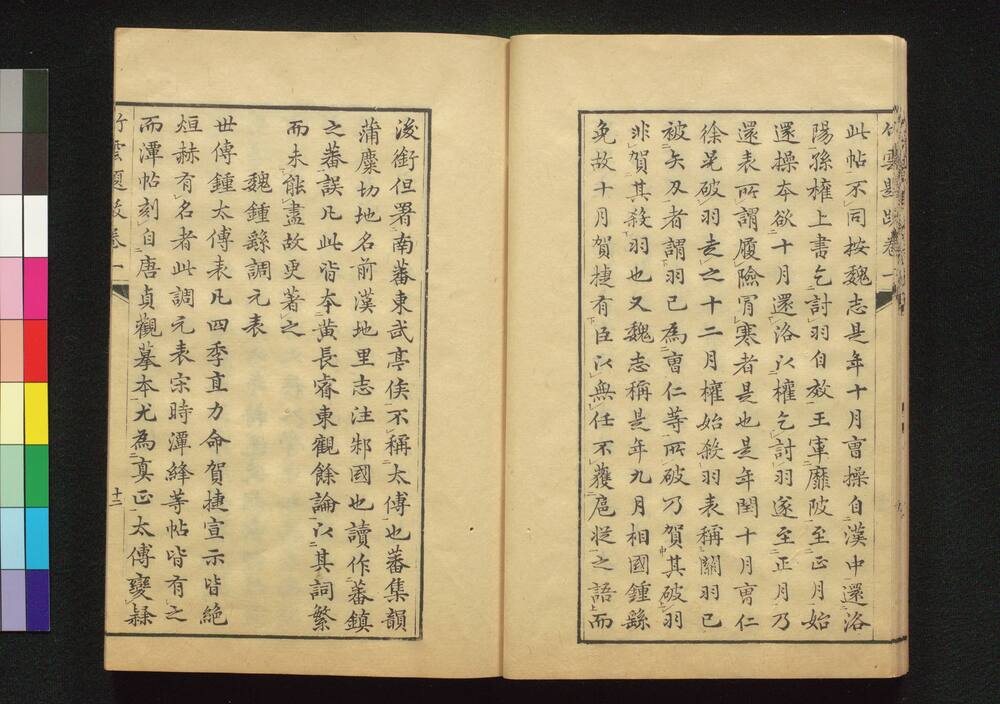 竹雲題跋卷一
此帖不同按魏志是年十月曹操自漢中還洛
陽孫權上書乞討羽自效王軍靡陂至正月始
還操本欲十月還洛以權乞討羽遂至正月乃
還表所謂履險冐寒者是也是年閏十月曹仁
徐晃破羽走之十二月權始殺羽表稱關羽已
被矢刃者謂羽已為曹仁等所破乃賀其破羽
非賀其殺羽也又魏志稱是年九月相國鍾繇
免故十月賀捷有臣以無任不獲扈從之語而
後銜但署南蕃東武亭侯不稱太傅也蕃集韻
蒲麋切地名前漢地里志注邾國也讀作蕃鎮
之蕃誤凡此皆本黃長睿東觀餘論以其詞繁
而未能盡故更著之
魏鍾繇調元表
世傳鍾太傅表凡四季直力命賀捷宣示皆絶
烜赫有名者此調元表宋時潭絳等帖皆有之
而潭帖刻自唐貞觀摹本尤為真正太傅變隸
竹雲題跋卷一
十二